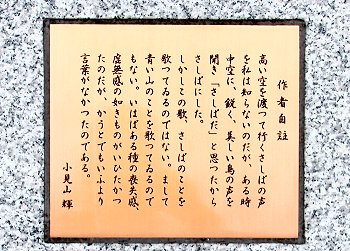 作者自註
高い空を渡つて行くさしばの声
を私は知らないのだが、ある時
中空に、鋭く、美しい鳥の声を
聞き「さしばだ」と思つたから
さしばにした。
しかしこの歌、さしばのことを
歌つてゐるのではない。まして
青い山のことを歌つてゐるので
もない。いはばある種の喪失感、
虚無感の如きものがいひたかつ
たのだが、かうとでもいふより
言葉がなかつたのである。
小見山 輝